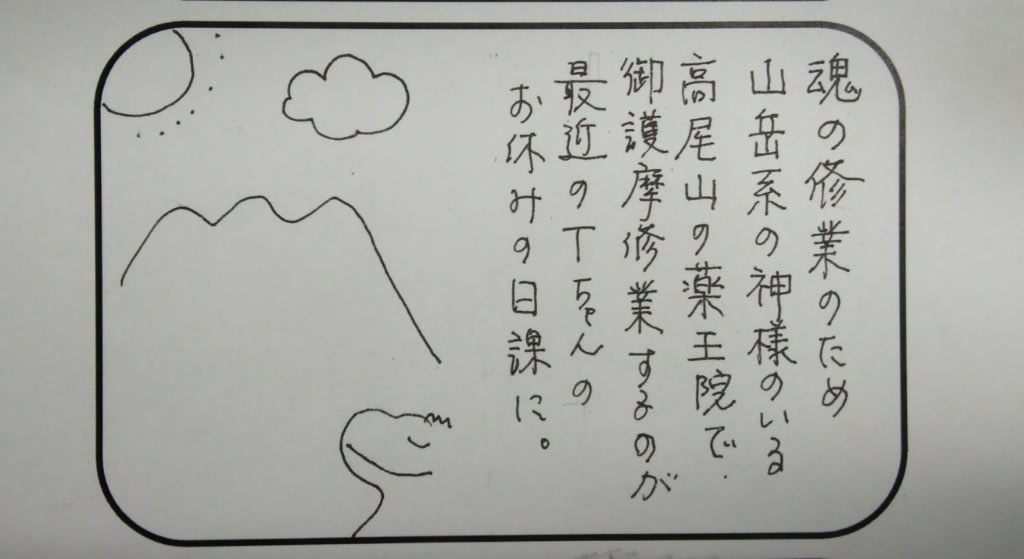 魂の修業のため
山岳系の神様のいる
高尾山の薬王院で
御護摩修業するのが
最近のTちゃんの
お休みの日課に。